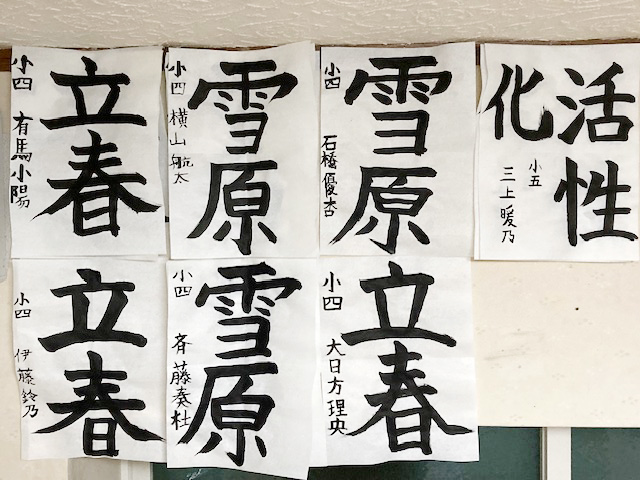 活性
化
小五
三上暖乃
雪原
小四
石橋優杏
雪原
小四
横山航太
立春
小四
有馬小陽
立春
小四
大日方理央
雪原
小四
斉藤奏杜
立春
小四
伊藤鈴乃